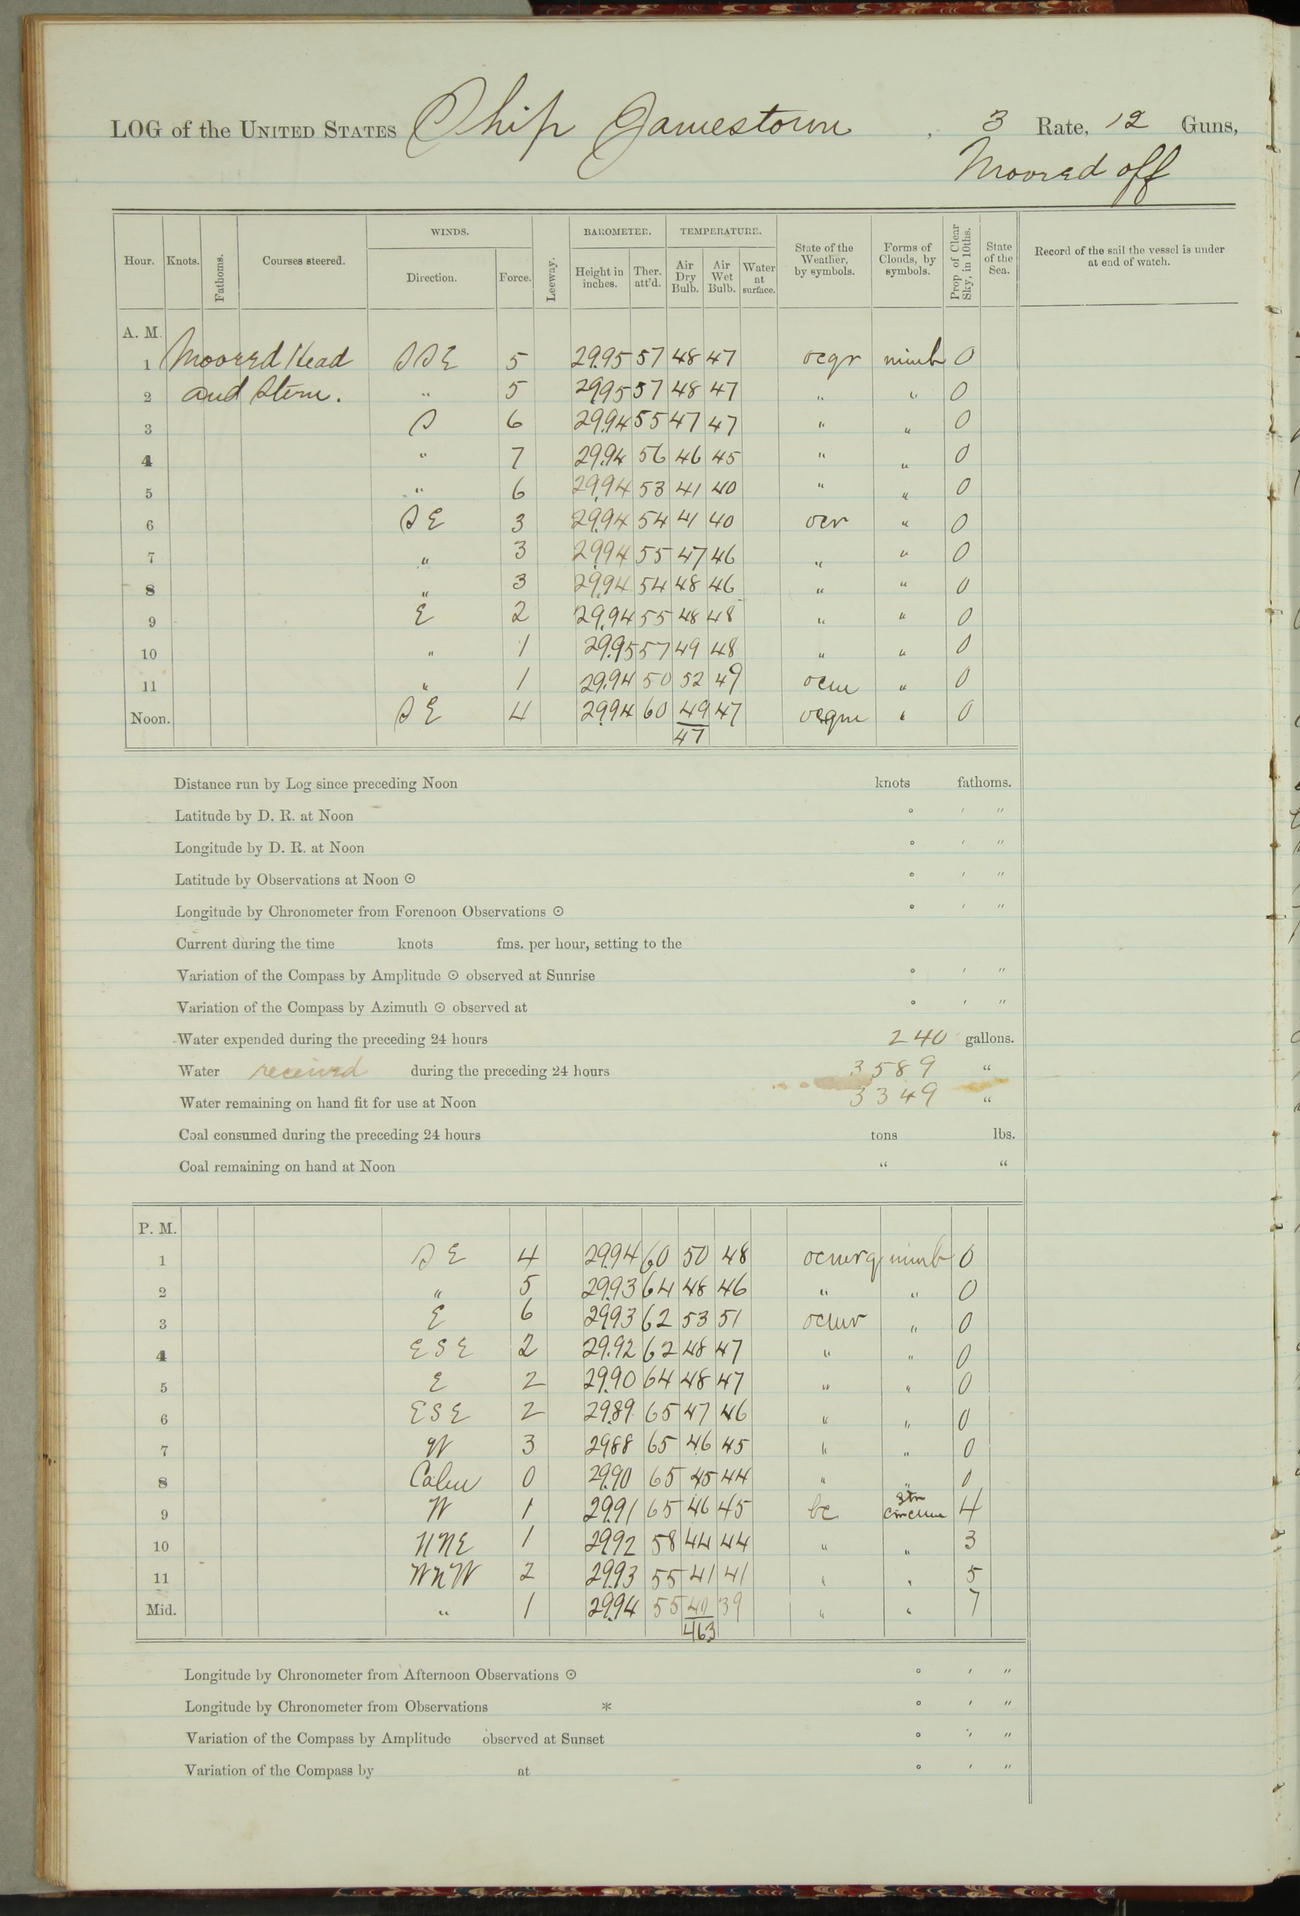 LOG of the UNITED STATES Ship Jamestown, 3 Rate, 12 Guns,
Moored off
Hour. Knots. Fathoms. Courses steered. WINDS. Direction. Force. Leeway. BAROMETER. Height in inches. Ther. att'd. TEMPERATURE. Air Dry Bulb. Air Wet Bulb. Water at surface. State of the Weather, by symbols. Forms of Clouds, by symbols. Prop. of Clear Sky, in 10ths. State of the Sea. Record of the sail the vessel is under at end of watch.
A. M.
1 Moored Head SSE 5 29.95 57 48 47 ocqr nimb 0
2 and Stern. " 5 29.95 57 48 47 " " 0
3 S 6 29.94 55 47 47 " " 0
4 " 7 29.94 56 46 45 " " 0
5 " 6 29.94 53 41 40 " " 0
6 SE 3 29.94 54 41 40 ocr " 0
7 " 3 29.94 55 47 46 " " 0
8 " 3 29.94 54 48 46 " " 0
9 E 2 29.94 55 48 48 " " 0
10 " 1 29.95 57 49 48 " " 0
11 " 1 29.94 50 52 49 ocm " 0
Noon. SE 4 29.94 60 49 47 ocqm " 0
47
Distance run by Log since preceding Noon knots fathoms.
Latitude by D. R. at Noon ° ′ ″
Longitude by D. R. at Noon ° ′ ″
Latitude by Observations at Noon ☉ ° ′ ″
Longitude by Chronometer from Forenoon Observations ☉ ° ′ ″
Current during the time knots fms. per hour, setting to the
Variation of the Compass by Amplitude ☉ observed at Sunrise ° ′ ″
Variation of the Compass by Azimuth ☉ observed at ° ′ ″
Water expended during the preceding 24 hours 240 gallons.
Water received during the preceding 24 hours 3589 "
Water remaining on hand fit for use at Noon 3349 "
Coal consumed during the preceding 24 hours tons lbs.
Coal remaining on hand at Noon " "
P. M.
1 SE 4 29.94 60 50 48 ocmrq nimb 0
2 " 5 29.93 64 48 46 " " 0
3 E 6 29.93 62 53 51 ocmr " 0
4 ESE 2 29.92 62 48 47 " " 0
5 E 2 29.90 64 48 47 " " 0
6 ESE 2 29.89 65 47 46 " " 0
7 W 3 29.88 65 46 45 " " 0
8 Calm 0 29.90 65 45 44 " " 0
9 W 1 29.91 65 46 45 bc str 4
10 NNE 1 29.92 58 44 44 " " 3
11 WNW 2 29.93 55 41 41 " " 5
Mid. " 1 29.94 55 40 39 " " 7
463
Longitude by Chronometer from Afternoon Observations ☉ ° ′ ″
Longitude by Chronometer from Observations * ° ′ ″
Variation of the Compass by Amplitude observed at Sunset ° ′ ″
Variation of the Compass by at ° ′ ″